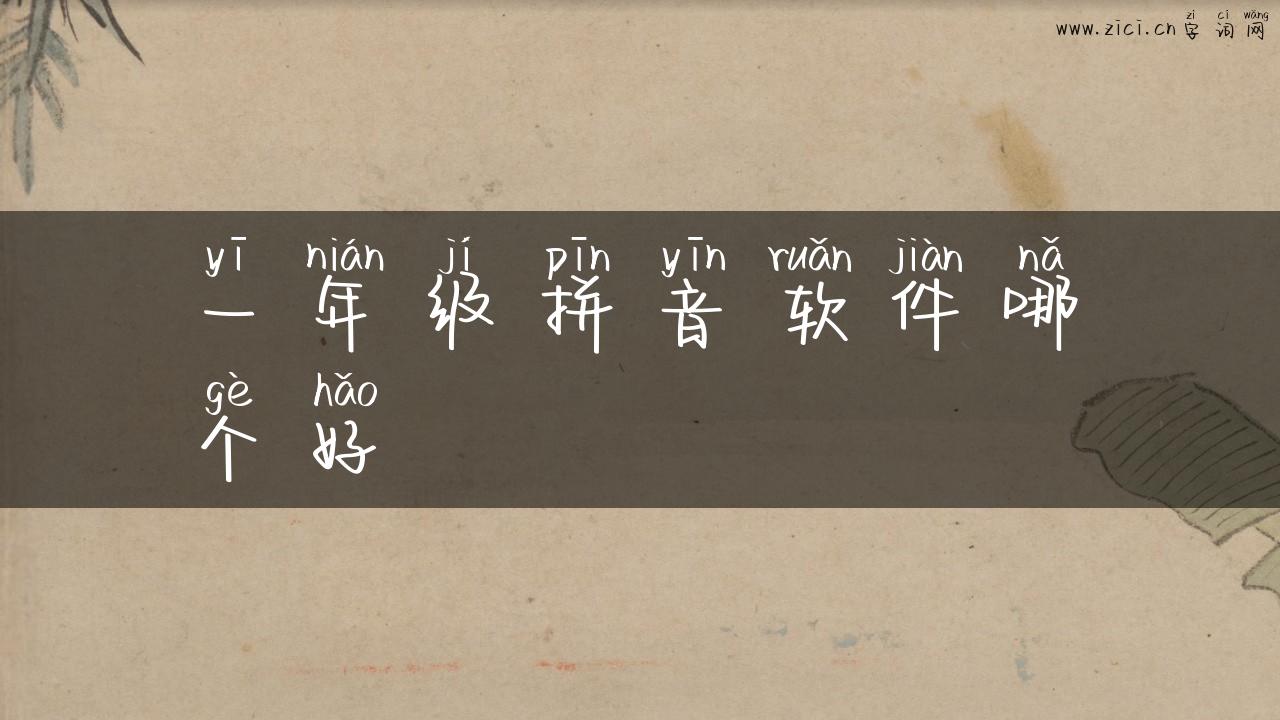 zì cí wǎng
www.zici.cn 字词网
yī nián jí pīn yīn ruǎn jiàn nǎ
一年级拼音软件哪
gè hǎo
个好